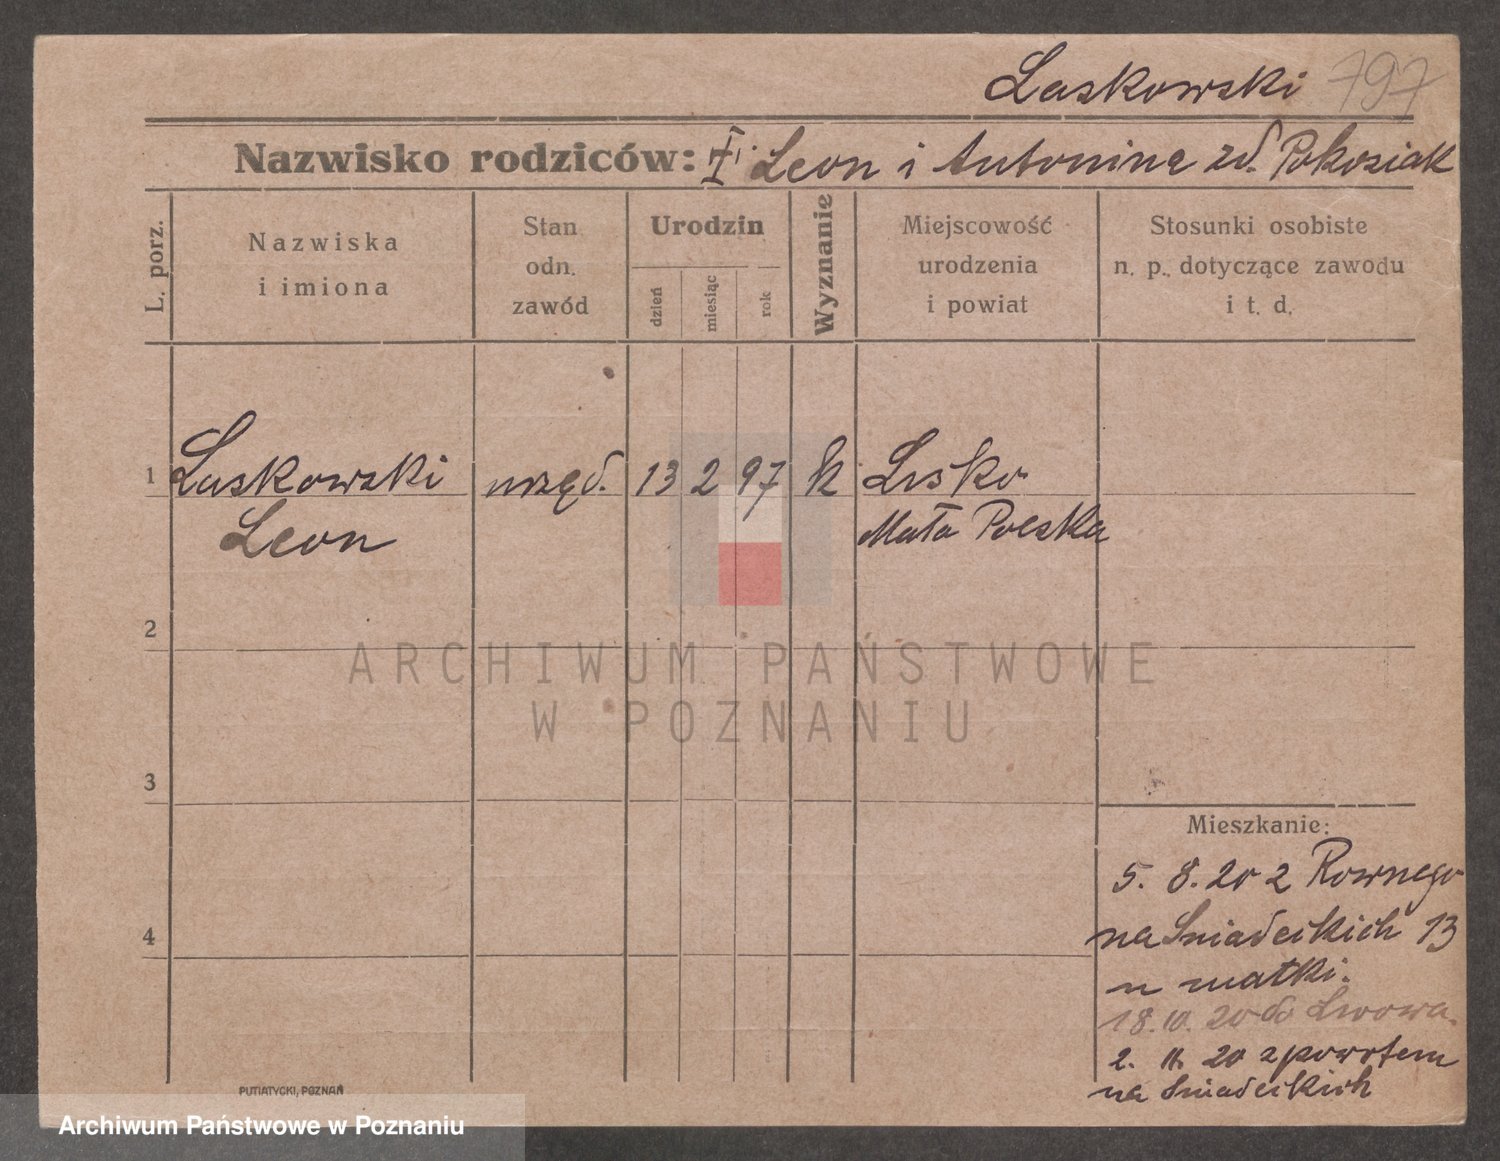 Laskowski 797
Nazwisko rodziców: I. Leon i Antonina zd. Pokoziak
L. porz.
Nazwiska
i imiona
Stan
odn.
zawód
Urodzin
dzień
miesiąc
rok
Wyznanie
Miejscowość
urodzenia
i powiat
Stosunki osobiste
n. p. dotyczące zawodu
i t. d.
1
Laskowski urzęd. 13 2 97 k Lisko
Leon
Mała Polska
2
ARCHIWUM PAŃSTWOWE
W POZNANIU
3
Mieszkanie:
5. 8. 20 z Rownego
na Sniadeckich 13
4
u matki.
18. 10. 20 do Lwowa.
2. 11. 20 zpowrotem
na Sniadeckich
PUTIATYCKI, POZNAŃ
Archiwum Państwowe w Poznaniu